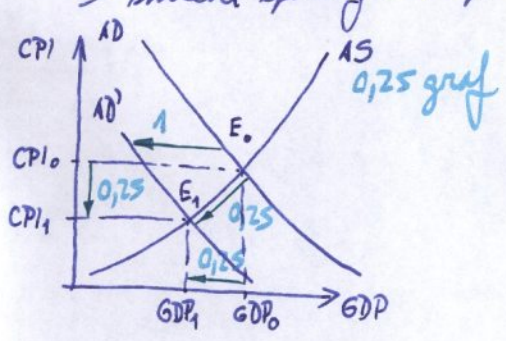 CPI AD AS
0,25 graf
AD' 1 E₀
CPI₀
0,25 E₁
0,25
CPI₁
0,25
GDP₁ GDP₀ GDP